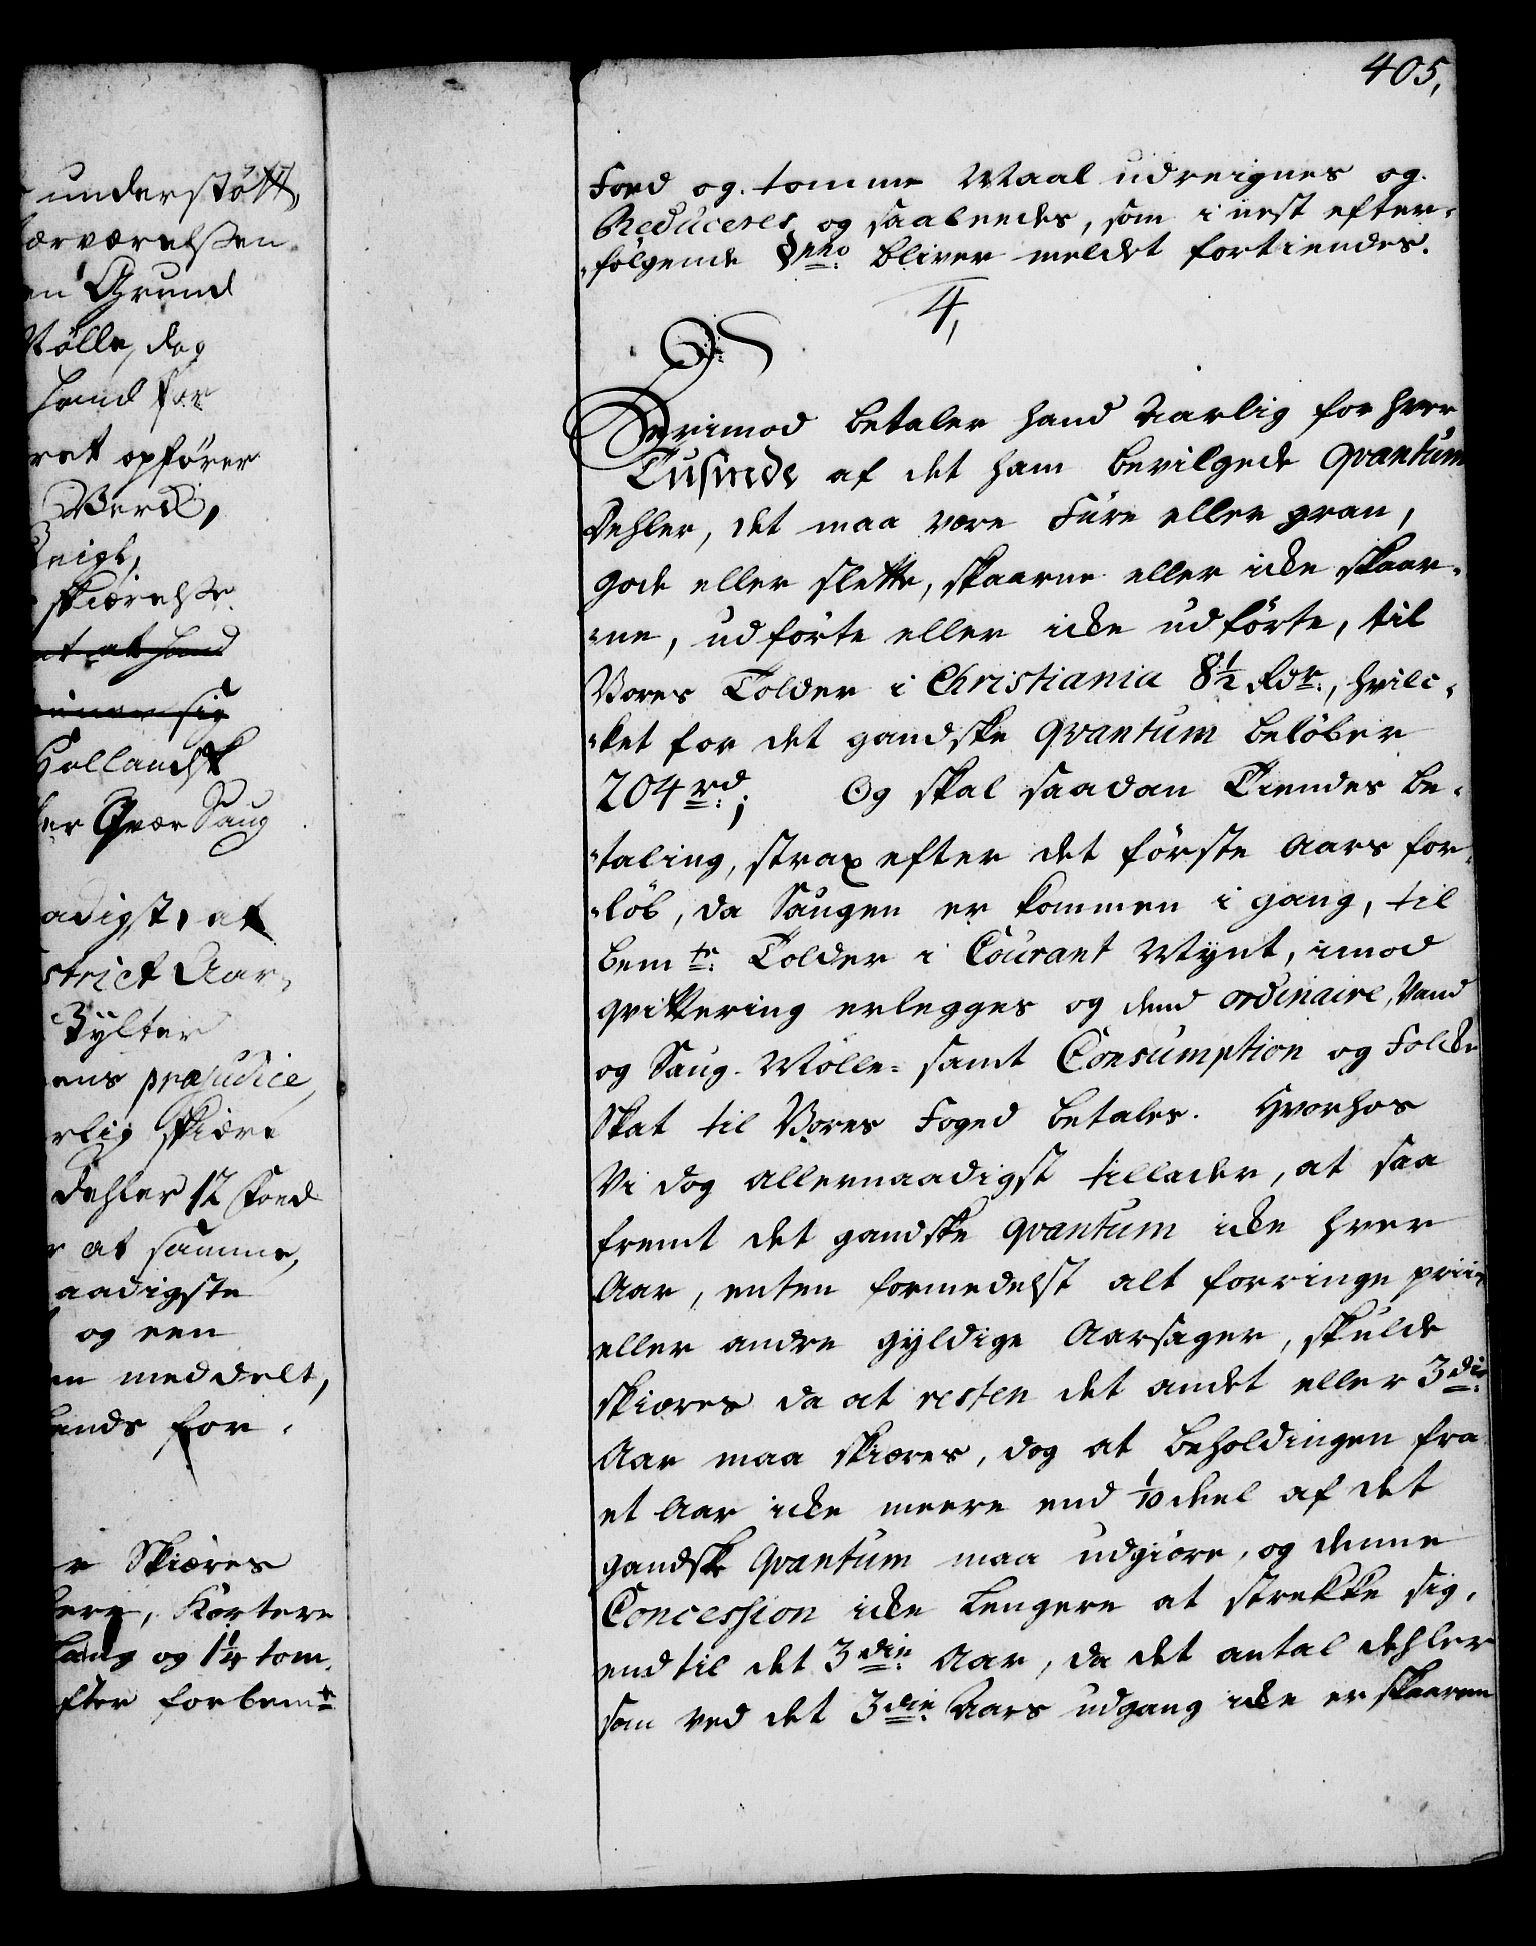 405,
understøtt,
nærværelsen
en Grund
Mølle, dog
hand for
ret opfører
Verck,
Leigl,
skiærelse
at at hand
sig
Hollandsk
ler Qvær Saug
aadigst, at
strict Aar-
Zylter
ens præjudice,
rlig skiære
dehler 12 Foed
r at samme,
aadigste
og een
en meddelt,
ends for-
e Skiæres
here, Kortere
lang og 1 1/4 tom.
fter forbemte
Foed og tomme Maal udreignes og
Reduceres og saaleedes, som i nest efter-
-følgende §pho bliver meldet fortiendes.
4,
Derimod betaler hand Aarlig for hver
Tusinde af det ham bevilgede Qvantum
Dehler, det maa være Füre eller gran,
gode eller slette, skaarne eller icke skaar-
-ne, udførte eller icke udførte, til
Vores Tolder i Christiania 8 1/2 Rdr., hvilc-
-ket for det gandske Qvantum beløber
204 rd; Og skal saadan Tiendes be-
-taling, strax efter det første Aars for-
-løb, da Saugen er kommen i gang, til
bemte Tolder i Courant Mynt, imod
qvittering erlegges og dend ordinaire Vand
og Saug-Mølle- samt Consumption og Folcke
Skat til Vores Foged betales. Hvorhos
Vi dog allernaadigst tillader, at saa
fremt det gandske qvantum icke hver
Aar, enten formedelst alt forringe priis
eller andre gyldige Aarsager, skulde
skiæres da at resten det andet eller 3die
Aar maa skiæres, dog at beholdingen fra
et Aar icke meere end 1/10 deel af det
gandske Qvantum maa udgiøre, og denne
Concession icke længere at strekke sig,
end til det 3die Aar, da det antal dehler
som ved det 3die Aars udgang icke er skaaren